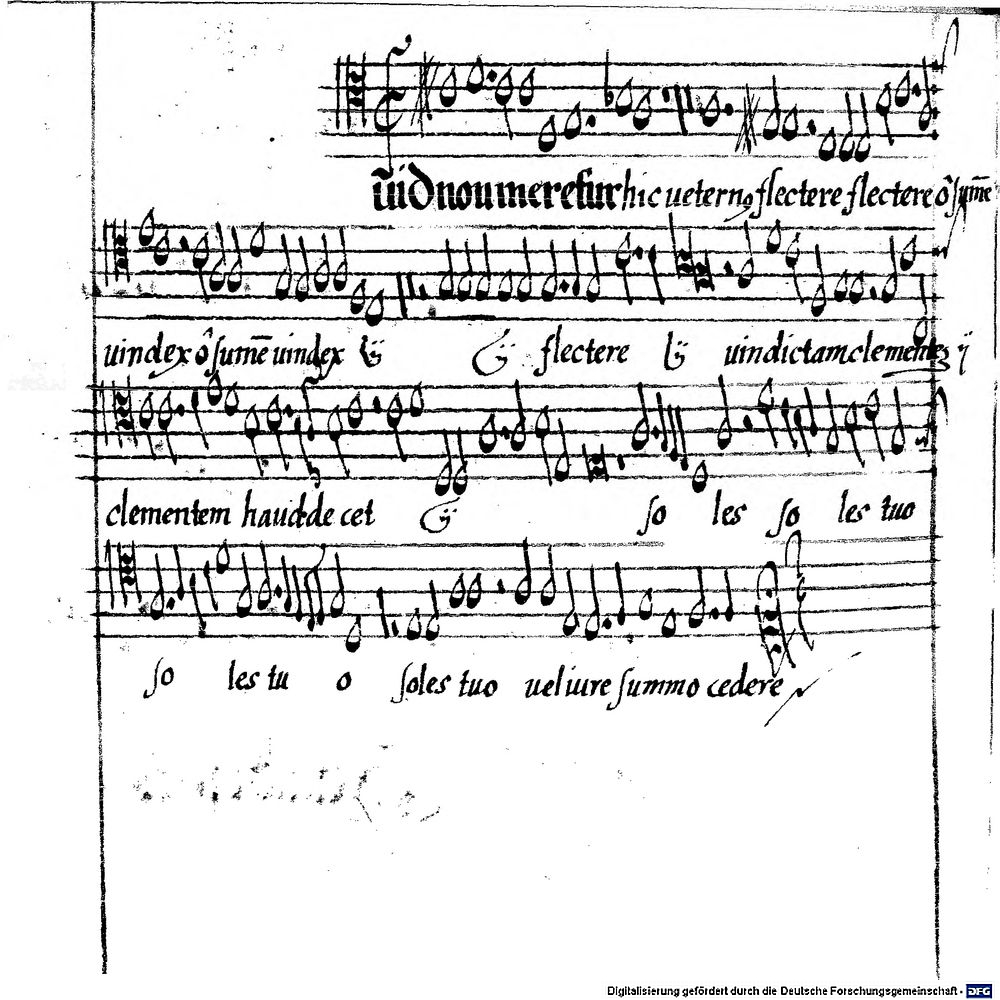 ũid non meretur hic ueternꝰ flectere flectere ô sum̃e
uindex ô sum̃e uindex ÿ ÿ flectere ÿ uindictam clementem ÿ
clementem haud decet ÿ so les so les tuo
so les tu o soles tuo vel iure summo cedere
Digitalisierung gefördert durch die Deutsche Forschungsgemeinschaft - DFG